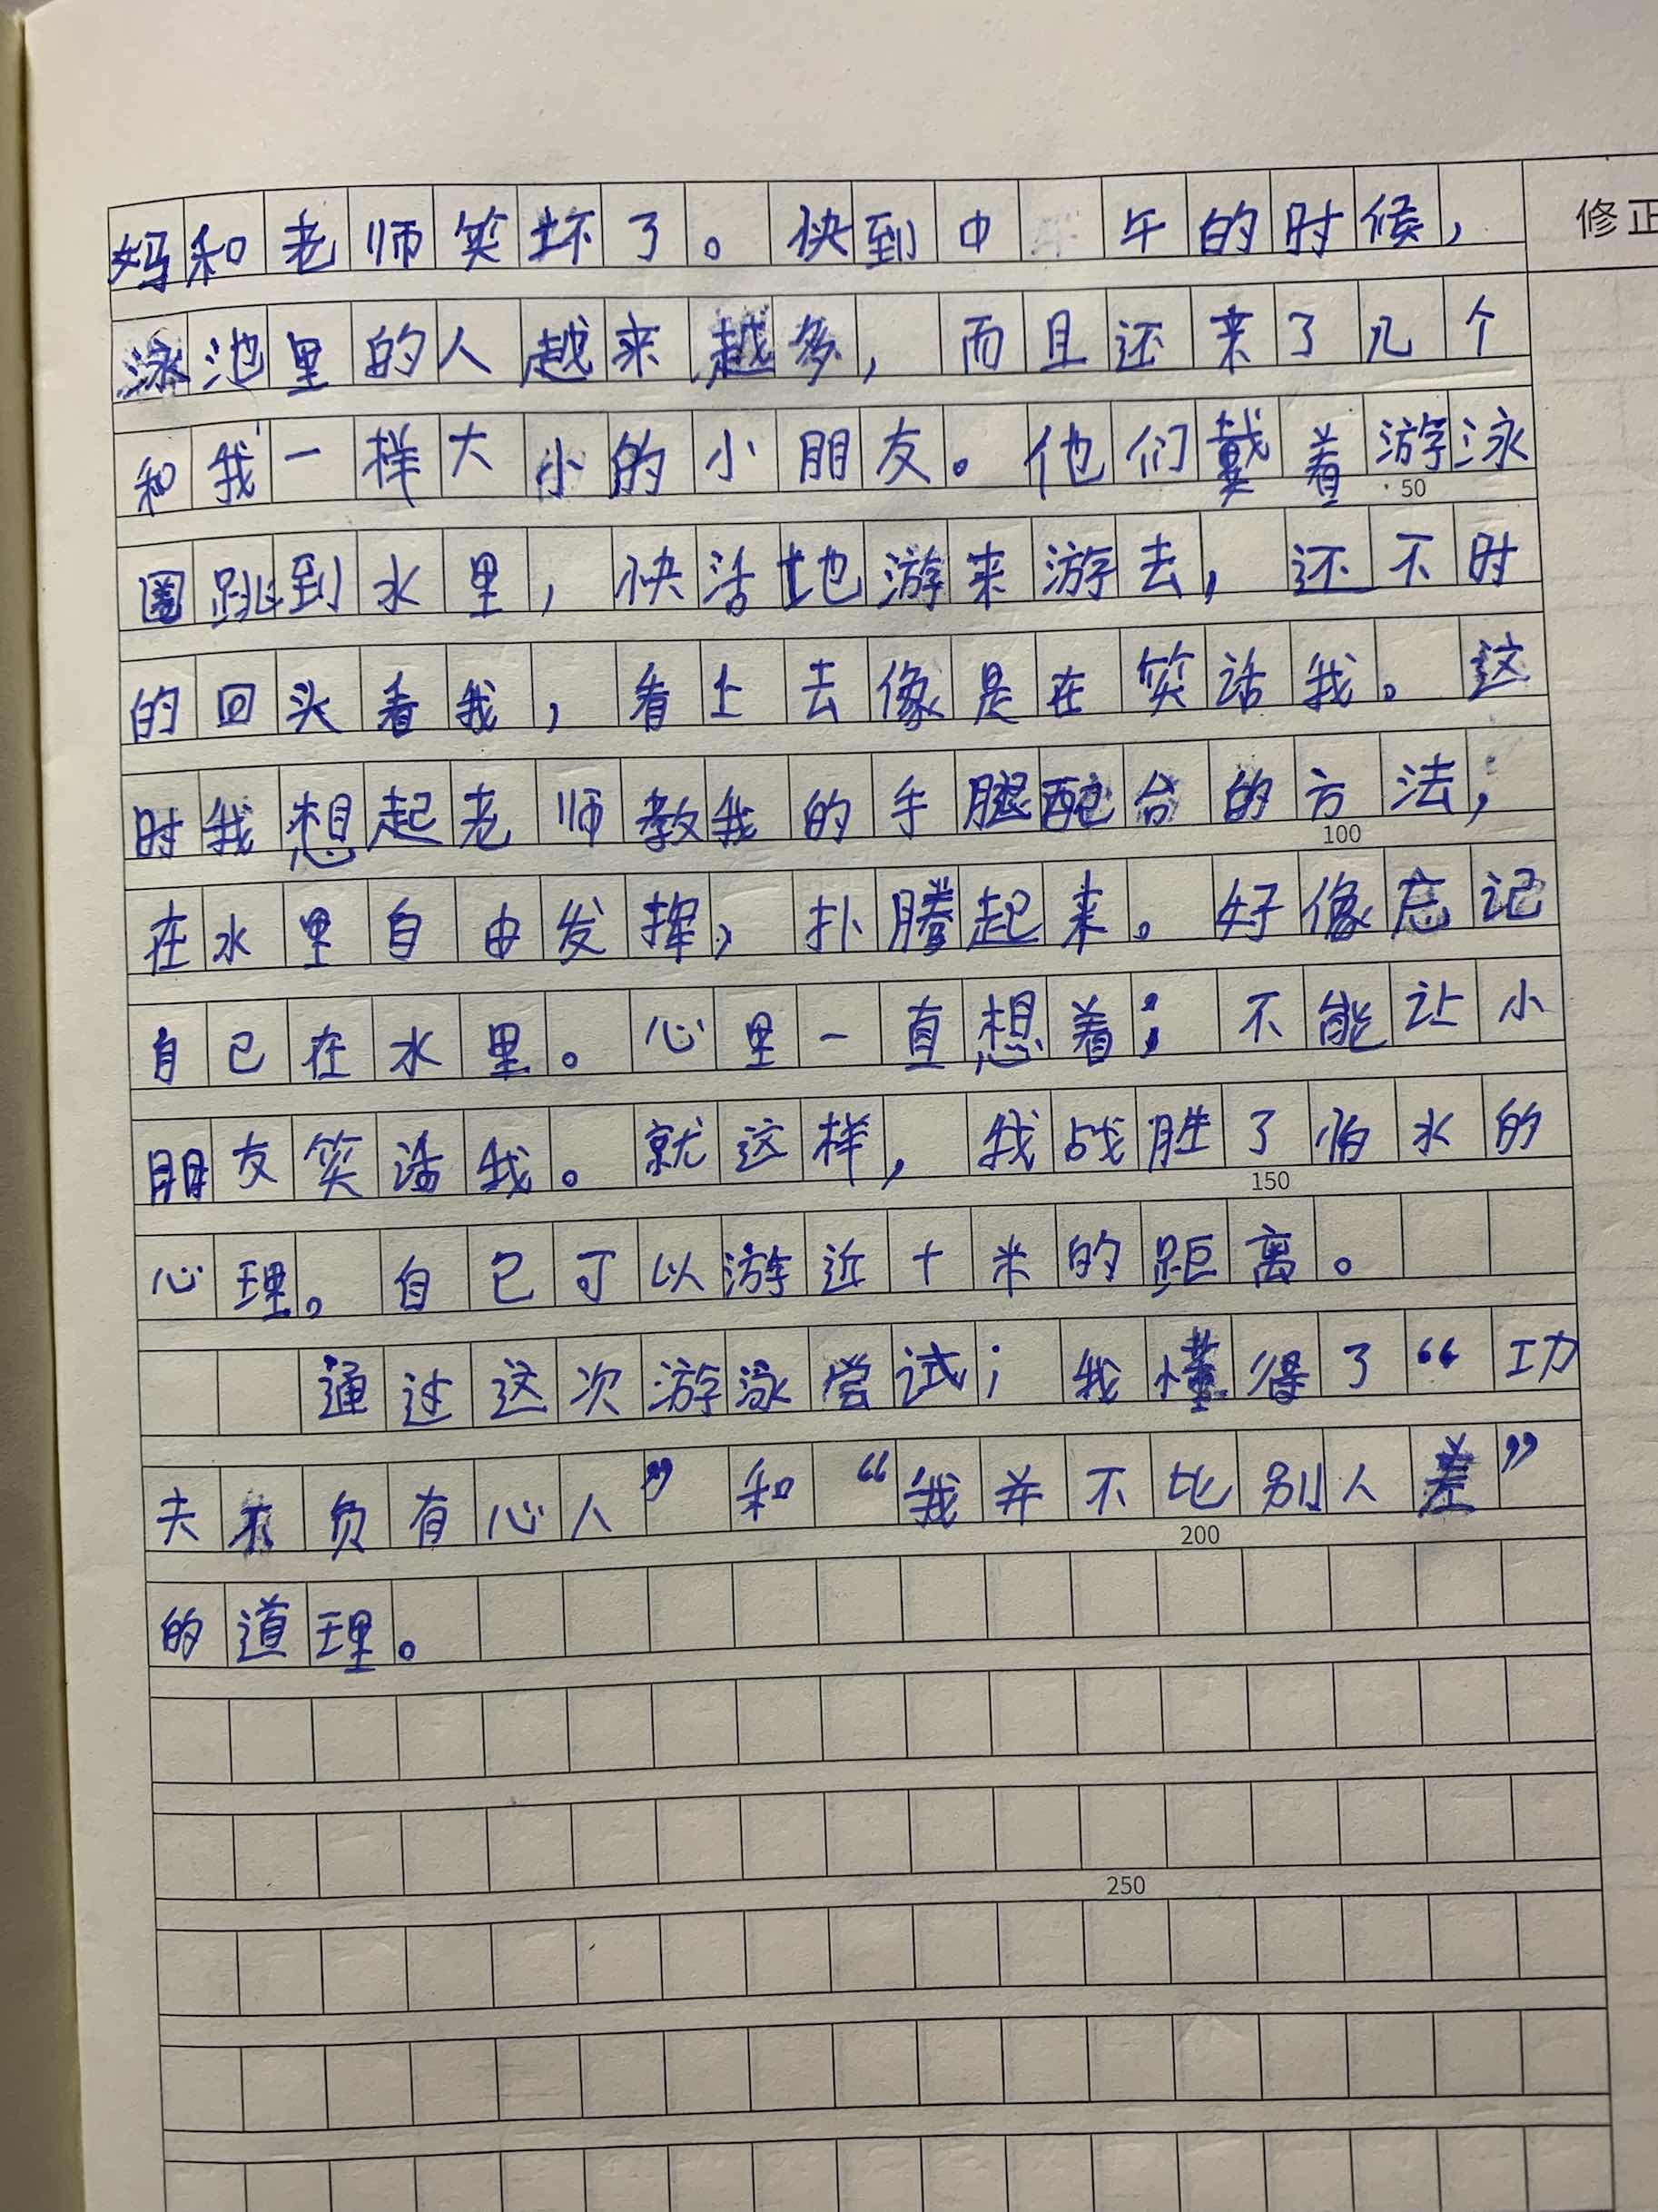 妈和老师笑坏了。快到中午的时候，
修正
泳池里的人越来越多，而且还来了几个
和我一样大小的小朋友。他们戴着游泳
50
圈跳到水里，快活地游来游去，还不时
的回头看我，看上去像是在笑话我。这
时我想起老师教我的手腿配合的方法；
100
在水里自由发挥，扑腾起来。好像忘记
自己在水里。心里一直想着；不能让小
朋友笑话我。就这样，我战胜了怕水的
150
心理。自己可以游近十米的距离。
通过这次游泳尝试；我懂得了“功
夫不负有心人”和“我并不比别人差”
200
的道理。
250